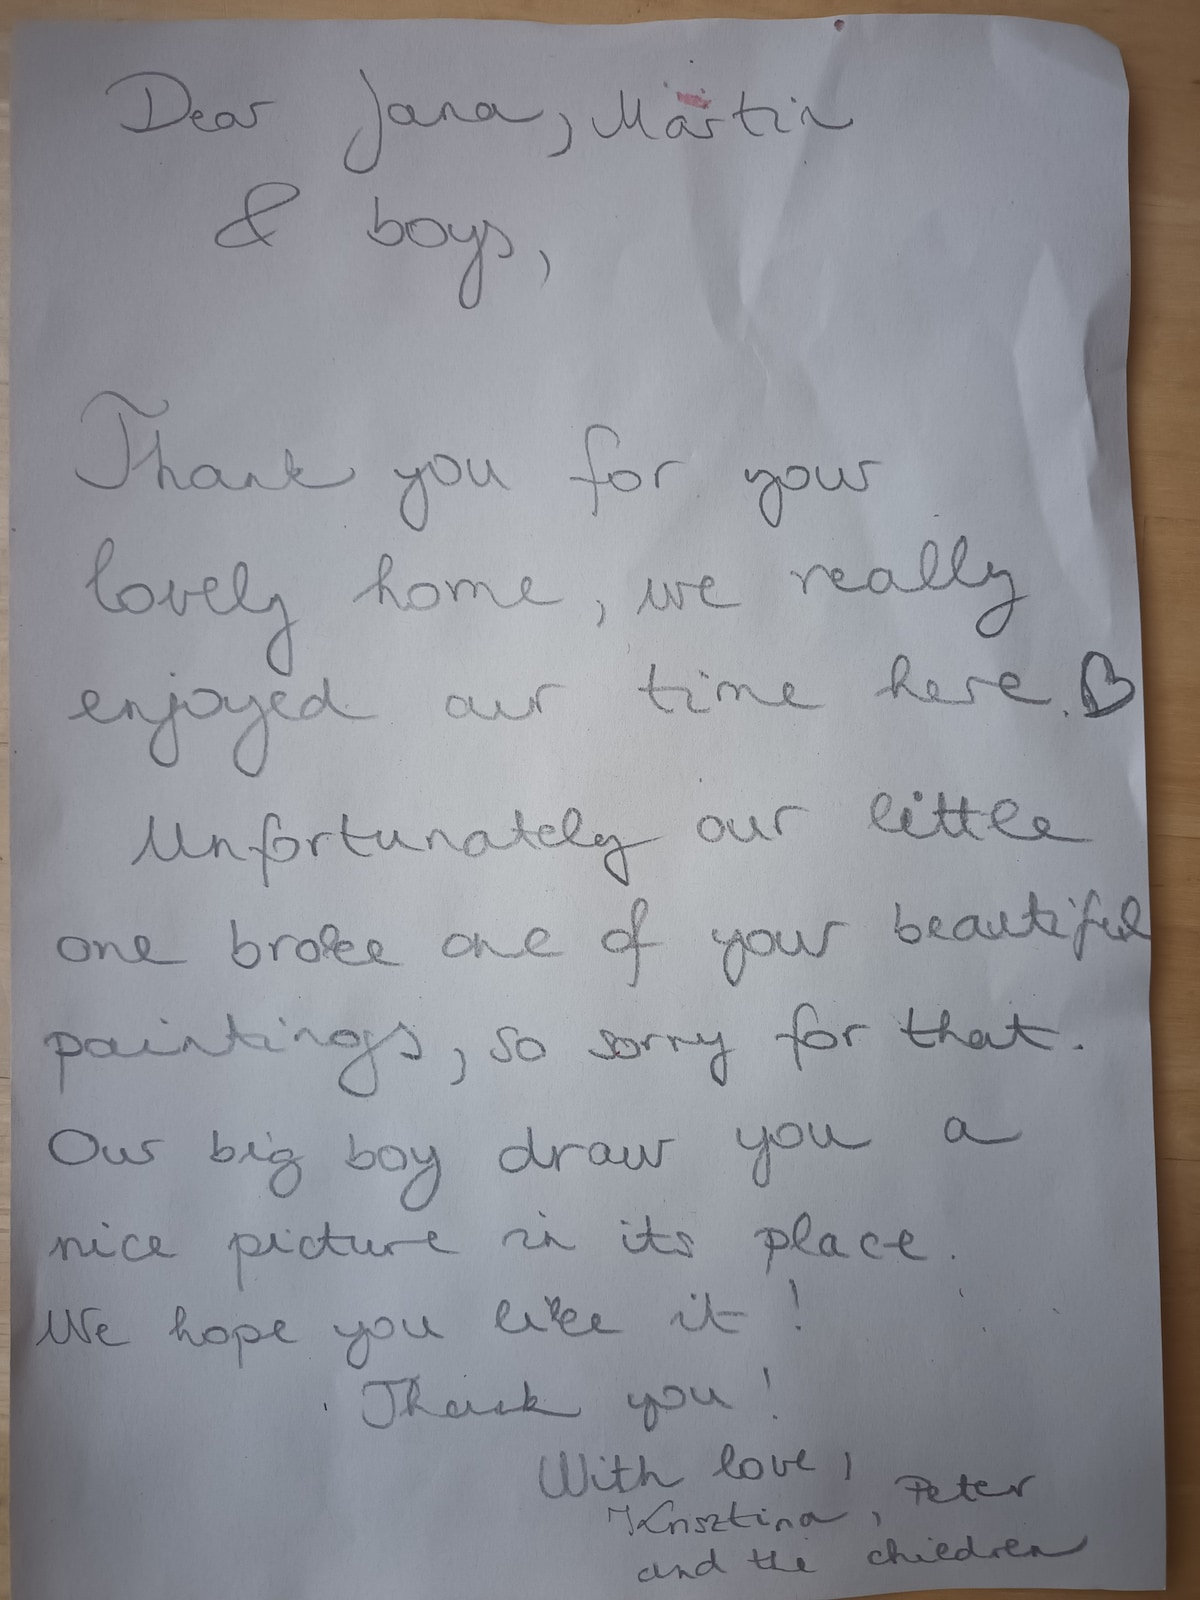 Dear Jana, Martin
& boys,
Thank you for your
lovely home, we really
enjoyed our time here. ♡
Unfortunately our little
one broke one of your beautiful
paintings, so sorry for that.
Our big boy draw you a
nice picture in its place.
We hope you like it!
Thank you!
With love,
Krisztina, Peter
and the children